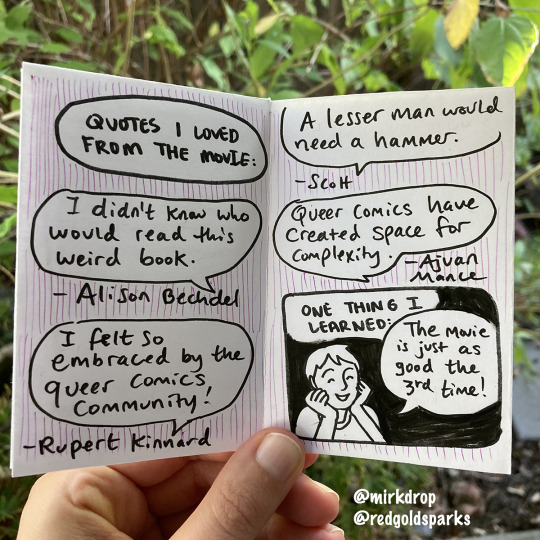 QUOTES I LOVED
FROM THE MOVIE:
I didn't know who
would read this
weird book.
- Alison Bechdel
I felt so
embraced by the
queer comics
community!
-Rupert Kinnard
A lesser man would
need a hammer.
-Scott
Queer Comics have
created space for
complexity.
-Ajuan
Mance
ONE THING I
LEARNED:
The movie
is just as
good the
3rd time!
@mirkdrop
@redgoldsparks